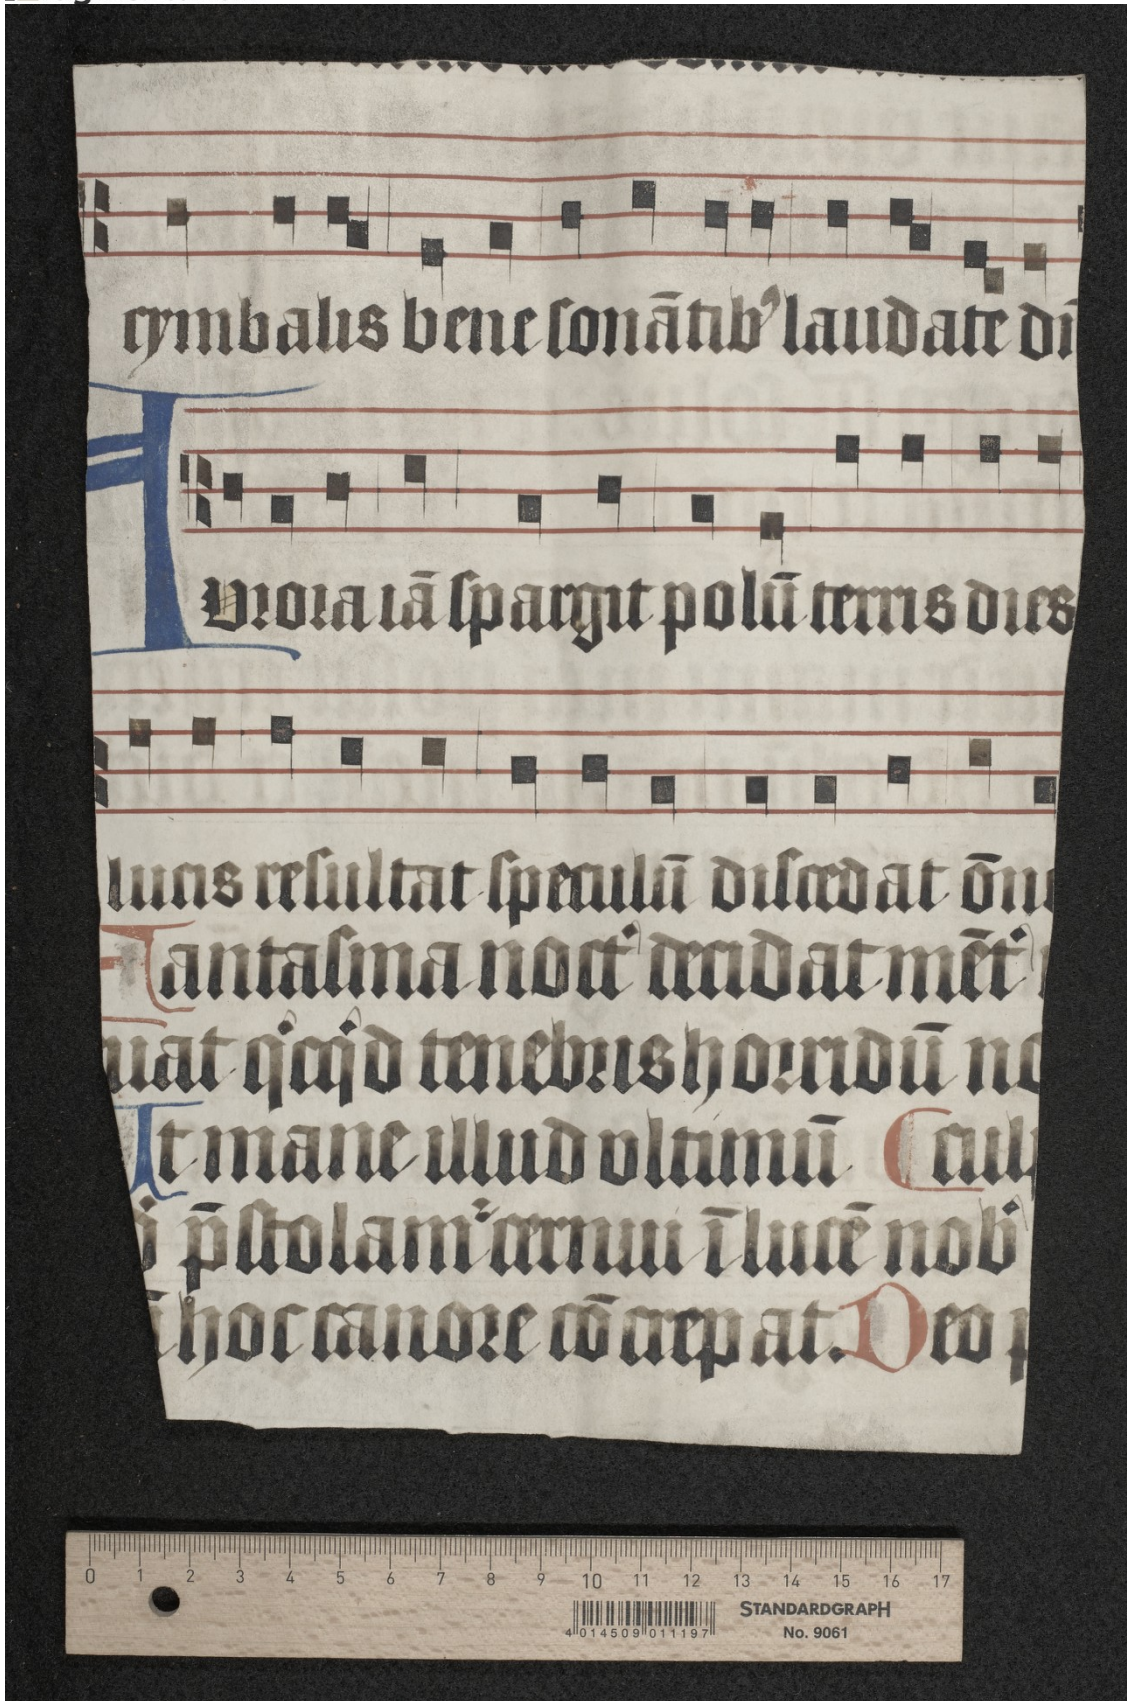 cymbalis bene sonātibꝰ laudate di
Aurora iā spargit polū terris dies
lucis resultat speculū discedat ōne
Fantasma noct decidat mēt
uat qͥcqͥd tenebris horridū no
Ut mane illud ultimū
p̄stolamᷣ cernui ī lucē nob
hoc canore cōcrepat. Deo p
0 1 2 3 4 5 6 7 8 9 10 11 12 13 14 15 16 17
STANDARDGRAPH
No. 9061
4 014509 011197